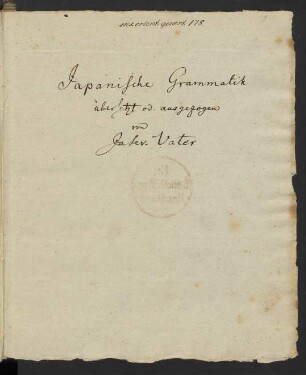 ms. orient. quart. 178
Japanische Grammatik
übersetzt od. ausgezogen
von
Jas. v. Vater